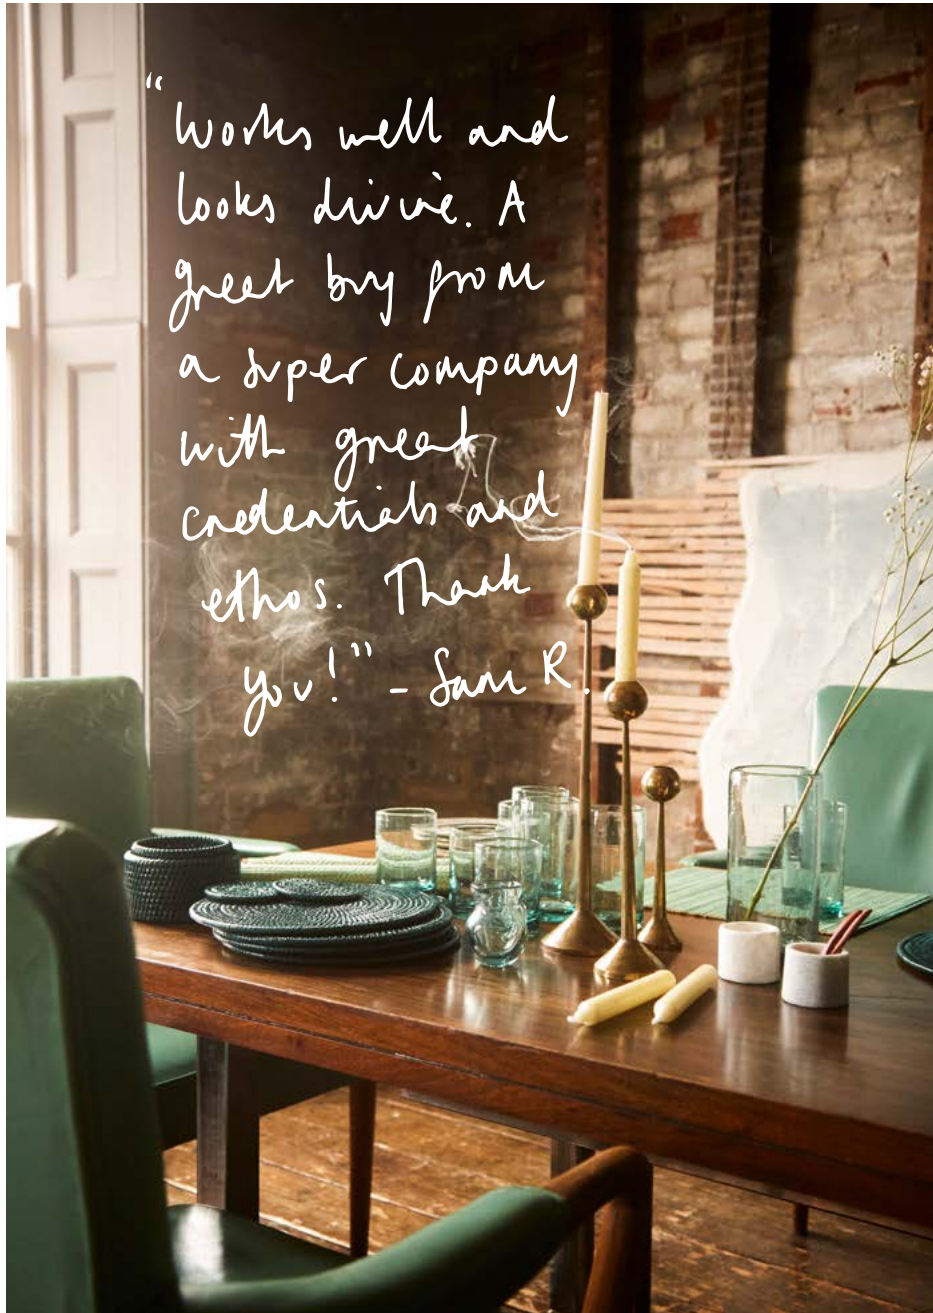 “Works well and
looks divine. A
great buy from
a super company
with great
credentials and
ethos. Thank
you!” - Sam R.